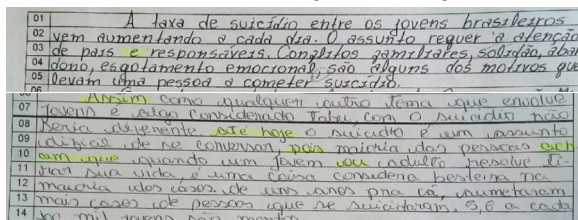 01 A taxa de suicídio entre os jovens brasileiros
02 vem aumentando a cada dia. O assunto requer a atenção
03 de pais e responsáveis. Conflitos familiares, solidão, aban
04 dono, esgotamento emocional, são alguns dos motivos que
05 levam uma pessoa a cometer suicídio.
Assim como qualquer outro tema que envolve
07 jovens é algo considerado tabu, com o suicídio não
08 seria diferente, até hoje o suicídio é um assunto
09 difícil de se conversar, pois maioria das pessoas ach
10 am que quando um jovem ou adulto resolve ti-
11 rar sua vida, é uma coisa considera besteira na
12 maioria dos casos. de uns anos pra cá, aumetaram
13 mais casos de pessoas que se suicidaram, e a cada
14 mil jovens são mortos